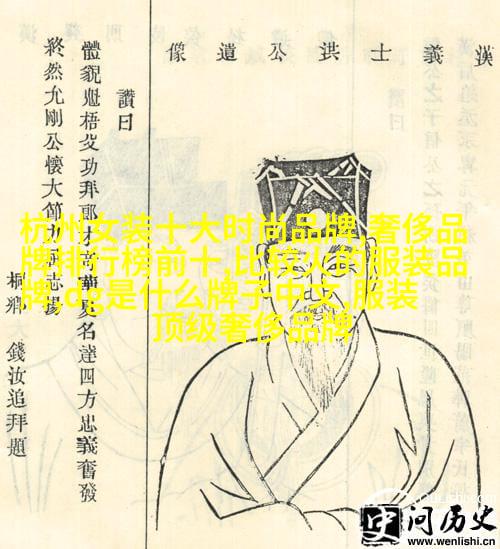 漢義士洪公遺像
讚曰
體貌魁梧文功拜郎才高華夏名達四方忠義奮發
終然允剛公懷大節九死志揚
桐鄉 錢汝追拜題
杭州女装十大时尚品牌,奢侈品
牌排行榜前十,比较火的服装品
牌,dg是什么牌子中文,服装
顶级奢侈品牌
问历史
www.wenlishi.cn